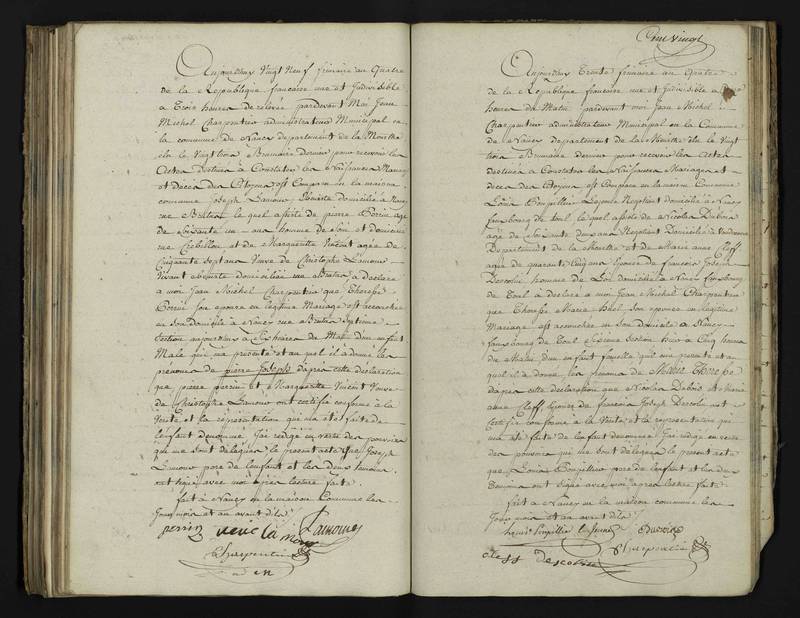 Aujourdhuy Vingt Neuf frimaire an Quatre
de la République française une et Indivisible
a Trois heures de relevée pardevant Moi Jean
Michel Charpentier administrateur Municipal en
la commune de Nancy département de la Meurthe
élu le Vingt trois Brumaire dernier pour recevoir les
Actes destinés à Constater les Naissances Mariages
et Décès des Citoyens est Comparu en la maison
commune Joseph Lamour domicilié à Nancy
rue le quel assisté de pierre Perrin agé
de Soixante un ans homme de loi et domicilié
rue Crebillon et de Marguerite Vincent agée de
Cinquante Sept ans Veuve de Christophe Lamour
Vivant domiciliée rue a déclaré
a moi Jean Michel Charpentier que Therese
Perrin son epouse en légitime Mariage est accouchée
en son domicile à Nancy rue Septieme
Section aujourdhuy à Six heures du Matin d'un enfant
Male qui ma présenté et au quel il a donné les
prénoms de pierre Joseph d'après cette déclaration
que pierre perrin et Marguerite Vincent Veuve
de Christophe Lamour ont certifié conforme à la
Vérité et la représentation qui ma été faite de
l'enfant dénommé J'ai rédigé en vertu des pouvoirs
qui me sont délégués le présent acte que Joseph
Lamour pere de lenfant et les deux temoins
ont signé avec moi après lecture faite
fait à Nancy en la maison Commune les
Jour mois et an avant dits
perrin veuve la mour Lamour
Charpentier
Cent vingt
Aujourdhuy Trente frimaire an Quatre
de la République française une et Indivisible a
heures du Matin pardevant moi Jean Michel
Charpentier administrateur Municipal en la Commune
de Nancy département de la Meurthe élu le Vingt
trois Brumaire dernier pour recevoir les Actes
destinés à Constater les Naissances Mariages et
décès des Citoyens est Comparu en la maison Commune
Louis Lejeune Négotiant domicilié à Nancy
fauxbourg de toul le quel assisté de Nicolas Dubois
agé de Soixante ans Négotiant Domicilié à
Département de la Meurthe et de Marie anne Cleff
agée de quarante Cinq ans Epouse de françois Joseph
homme de Loi domiciliée à Nancy fauxbourg
de Toul a déclaré a moi Jean Michel Charpentier
que Therese Marie son epouse en Legitime
Mariage est accouchée en son domicile à Nancy
fauxbourg de Toul Section hier à Cinq heures
du Matin d'un enfant femelle qui ma presenté et au
quel il a donné les prenoms de Therese
d'après cette déclaration que Nicolas Dubois et Marie
anne Cleff Epouse de francois Joseph ont
Certifié conforme à la Verité et la représentation qui
ma été faite de lenfant dénommé J'ai rédigé en vertu
des pouvoirs qui me sont délégués le present acte
que Louis pere de lenfant et les deux
temoins ont signé avec moi après lecture faite
fait à Nancy en la maison commune les
Jour mois et an avant dits
Louis le Jeune Dubois
Charpentier
cleff